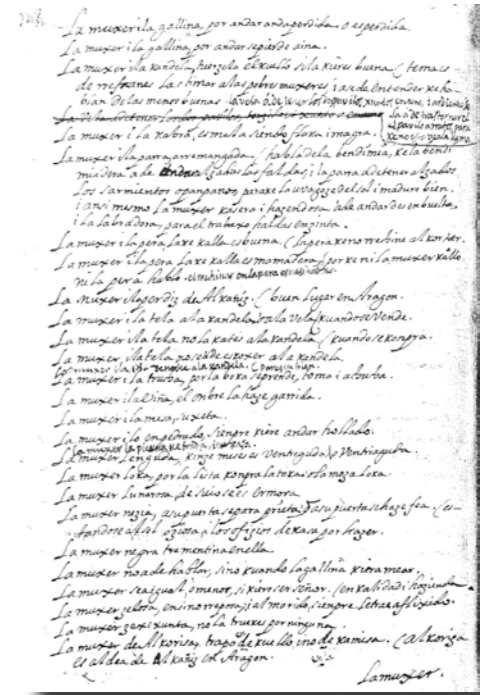 La muxer i la gallina, por andar anda perdida o es perdida.
La muxer i la gallina, por andar se pierde aina.
La muxer i la kandela, tuerzela el kuello si la kieres buena. ( tema es
de rrefranes lastimar a las pobres muxeres; i asе de entender ke ha-
bian de las menos buenas
La muxer i la kabra, es mala siendo flaka i magra.
La muxer i la parra, arremangada. ( habla de la bendimia, ke la bendi
miadera a de alzadas las faldas; i la parra á de tener alzados
los sarmientos o panpanos, para ke la uva goze del sol i madure bien.
i ansi mesmo la muxer kasera i hazendosa á de andar desenbuelta,
i la labradora, para el trabaxo haldas en zinta.
La muxer i la pera, la ke kalla es buena. ( la pera ke no
La muxer i la pera, la ke kalla es mas madera. ( porke ni la muxer kalló
ni la pera habló
La muxer i la perdiz de Alkañiz. ( buen lugar en Aragon.
La muxer i la tela a la kandela, o a la vela, kuando se vende.
La muxer i la tela no la kates a la kandela. ( kuando se konpra.
La muxer i la tela no se á de eskoxer a la kandela.
La muxer i la trucha, por la boka se prende
La muxer i la viña, el onbre la haze garrida.
La muxer i la mesa, suxeta.
La muxer i lo enpedrado, sienpre kiere andar hollado.
La muxer
La muxer loka, por la lista konpra la toka; o la moza loka.
La muxer lunarosa, de suio se es ermosa.
La muxer nezia, a su puerta se para prieta; o a su puerta se haze fea. ( es-
tandose al sol oziosa, i los ofizios de kasa por hazer.
La muxer negra trementina en ella.
La muxer no á de hablar, sino kuando la gallina kiera mear.
La muxer sea igual, o menor, si kieres ser señor. ( en kalidad i hazienda.
La muxer zelosa, en si no reposa; i al marido, sienpre le trae aflixido.
La muxer zexixunta, no la trukes por ninguna.
La muxer de Alkorisa, trapo de kuello i no de kamisa. ( Alkoriza
es aldea de Alkañiz en Aragon.
La muxer.